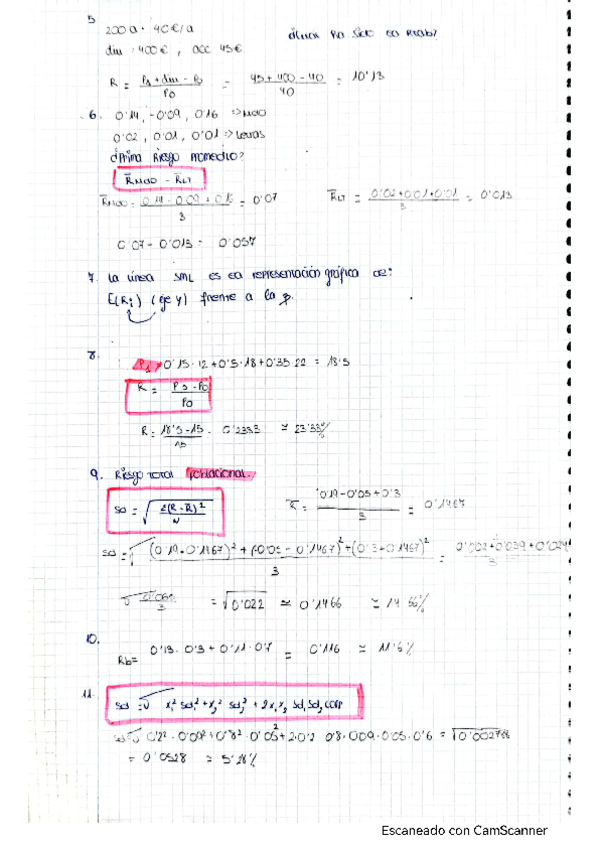 5
200 a · 40€/a
div : 400€ , acc 45€
R = P1 + div - P0 / P0 = 45 + 400 - 40 / 40 = 10'13
6. 0'14, -0'09, 0'16 => Mdo
0'02, 0'01, 0'01 => Letras
¿Prima Riesgo Promedio?
R̄Mdo - R̄LT
R̄Mdo = 0'14 - 0'09 + 0'16 / 3 = 0'07
R̄LT = 0'02+0'01+0'01 / 3 = 0'013
0'07 - 0'013 = 0'057
7. La línea SML es la representación gráfica de:
E(Ri) (eje y) frente a la β.
8.
P1 0'15 · 12 + 0'5 · 18 + 0'35 · 22 = 18'5
R = P1 - P0 / P0
R = 18'5 - 15 / 15 = 0'2333 ≈ 23'33%
9. Riesgo total poblacional.
sd = √ Σ(R - R̄)² / N
R̄ = 0'19 - 0'05 + 0'3 / 3 = 0'1467
= √0'022 ≈ 0'1466 ≈ 14'66%
10.
Rb = 0'13 · 0'3 + 0'11 · 0'7 = 0'116 ≈ 11'6%
11.
sd = √ x₁² sd₁² + x₂² sd₂² + 2x₁x₂ sd₁ sd₂ corr
sd = √ 0'2² · 0'09² + 0'8² · 0'05² + 2·0'2 · 0'8 · 0'09 · 0'05 · 0'6 =
= 0'0528 ≈ 5'28%
Escaneado con CamScanner